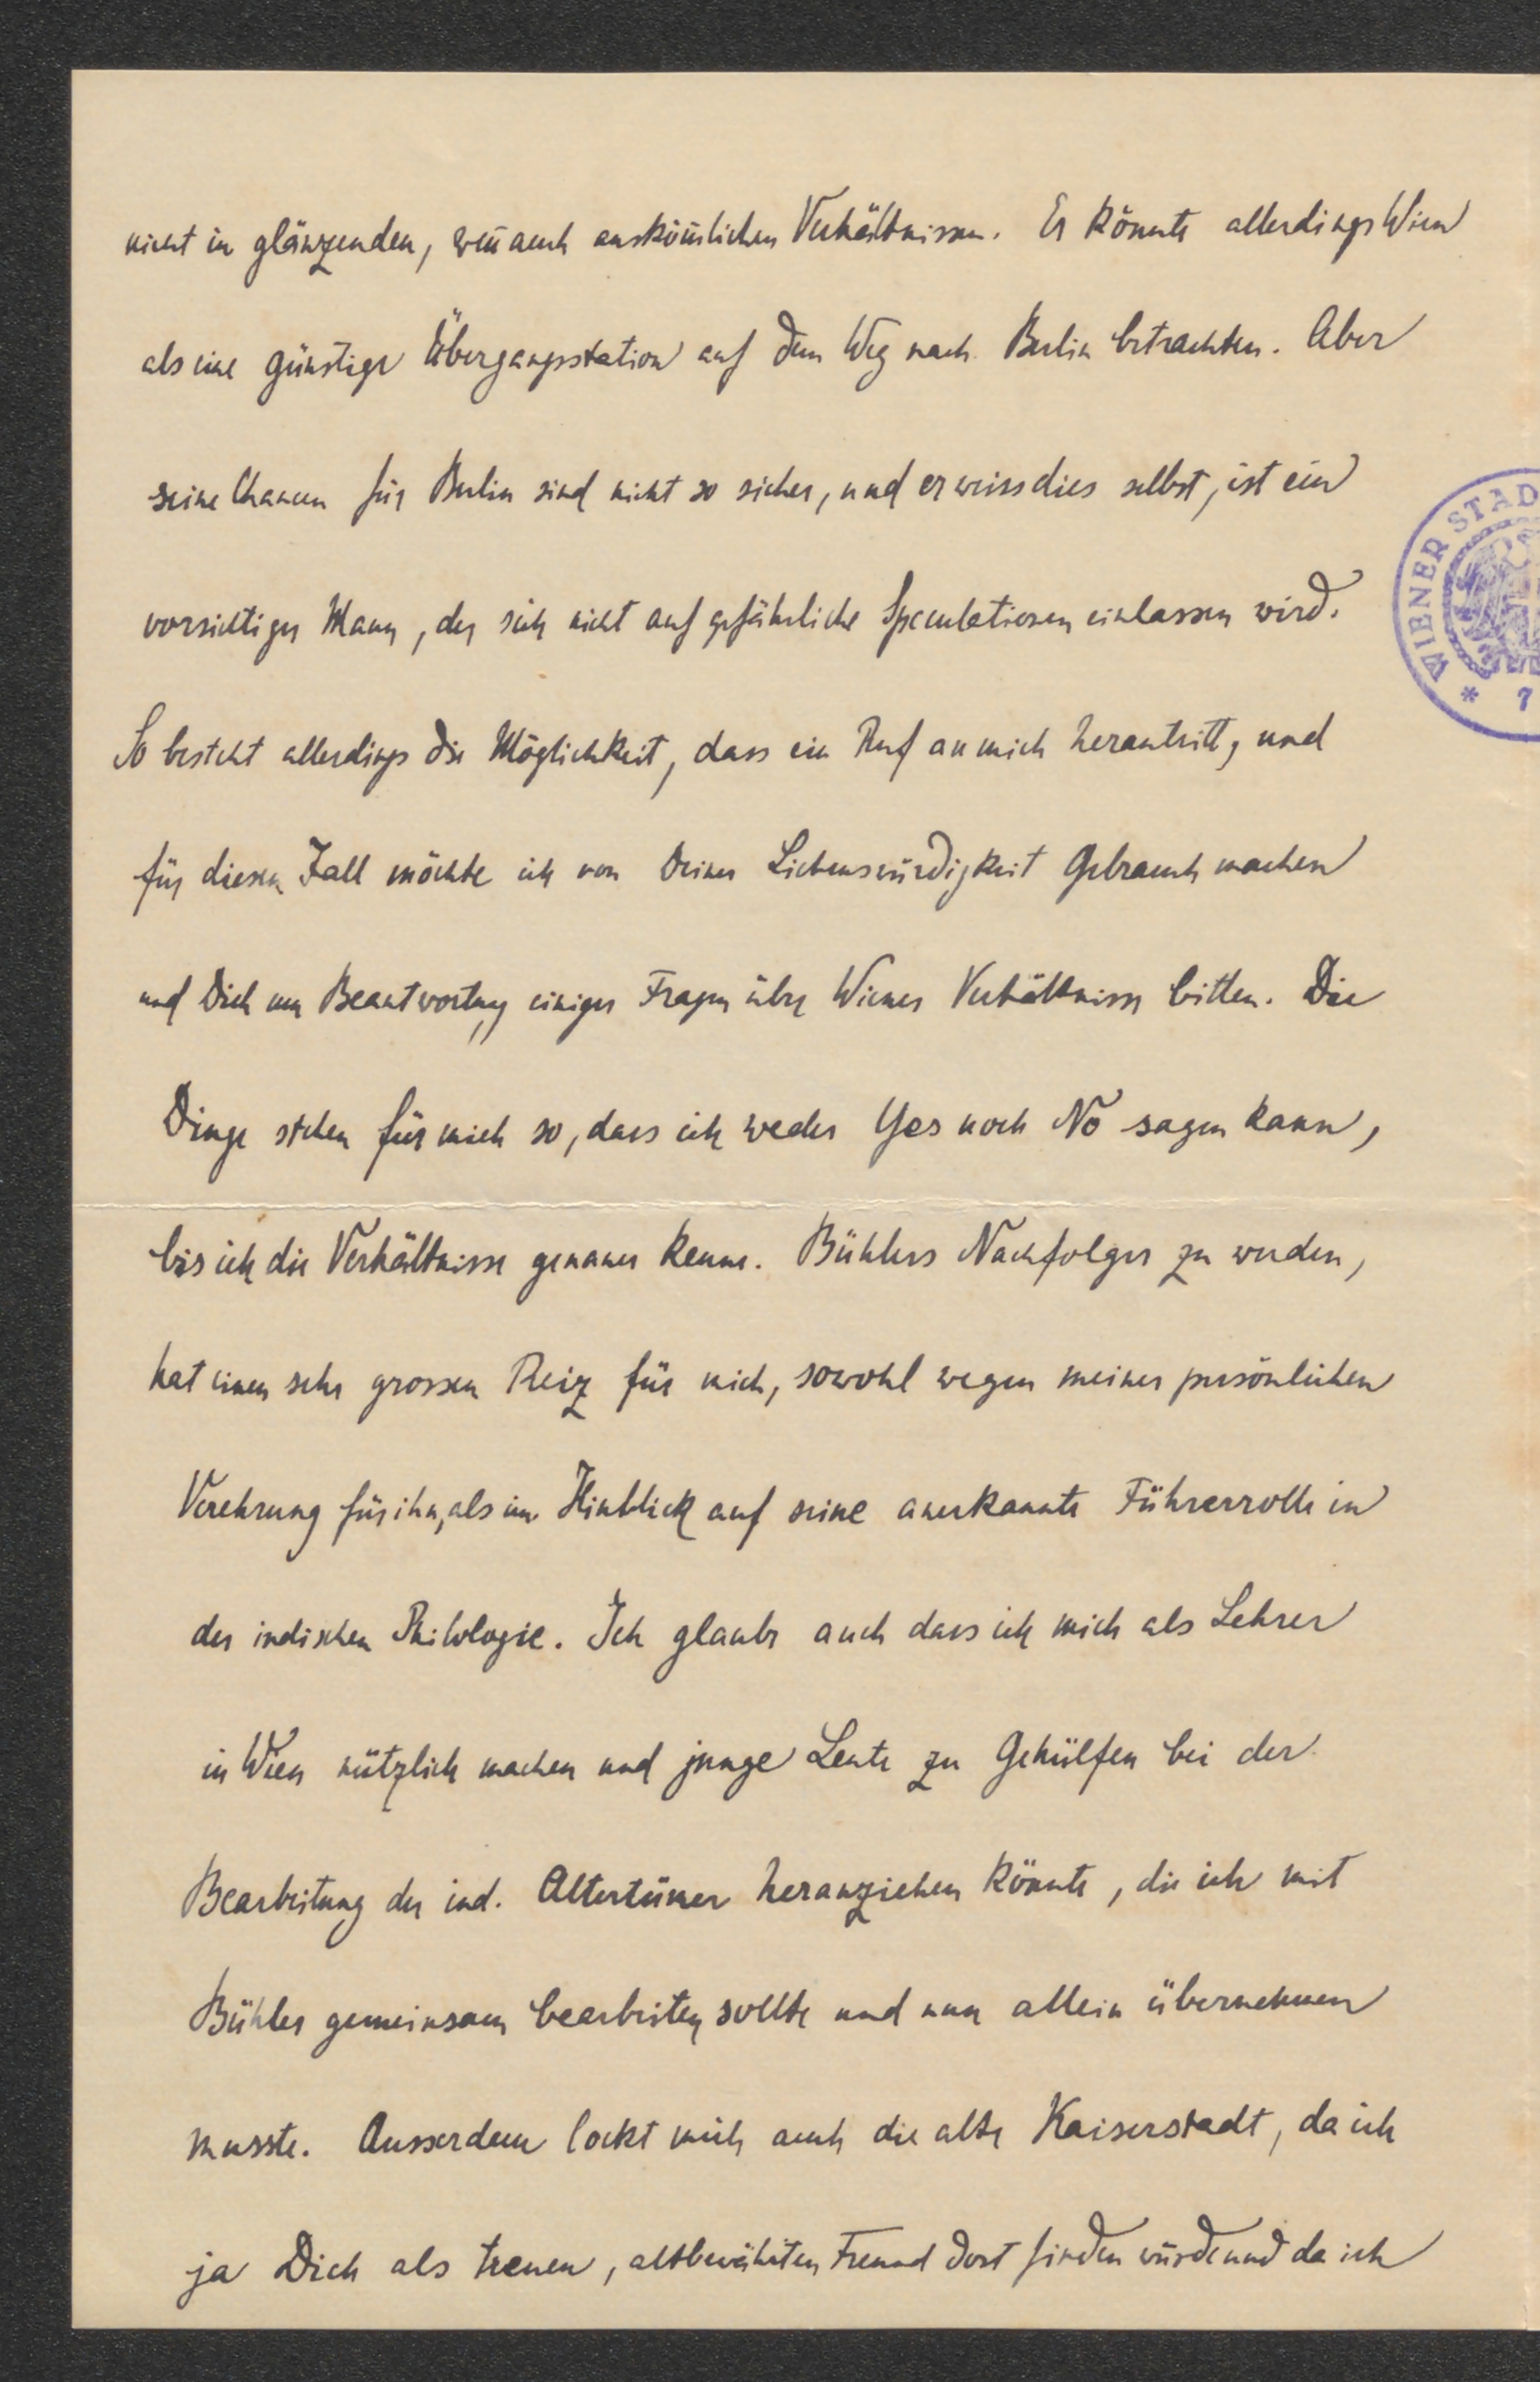 nicht in glänzenden, weñ auch auskömlichen Verhältnissen. Er könnte allerdings Wien
als eine günstige Übergangsstation auf dem Weg nach Berlin betrachten. Aber
seine Chancen für Berlin sind nicht so sicher, und er weiss dies selbst, ist ein
vorsichtiger Mann, der sich nicht auf gefährliche Speculationen einlassen wird.
So besteht allerdings die Möglichkeit, dass ein Ruf an mich herantritt, und
für diesen Fall möchte ich von Deiner Liebenswürdigkeit Gebrauch machen
und Dich um Beantwortung einiger Fragen über Wiener Verhältnisse bitten. Die
Dinge stehen für mich so, dass ich weder Yes noch No sagen kann,
bis ich die Verhältnisse genauer kenne. Bühlers Nachfolger zu werden,
hat einen sehr grossen Reiz für mich, sowohl wegen meiner persönlichen
Verehrung für ihn, als im Hinblick auf seine anerkannte Führerrolle in
der indischen Philologie. Ich glaube auch dass ich mich als Lehrer
in Wien nützlich machen und junge Leute zu Gehülfen bei der
Bearbeitung der ind. Altertümer heranziehen könnte, die ich mit
Bühler gemeinsam bearbeiten sollte und nun allein übernehmen
musste. Ausserdem lockt mich auch die alte Kaiserstadt, da ich
ja Dich als treuen, altbewährten Freund dort finden würde und da ich
WIENER STAD
* 7